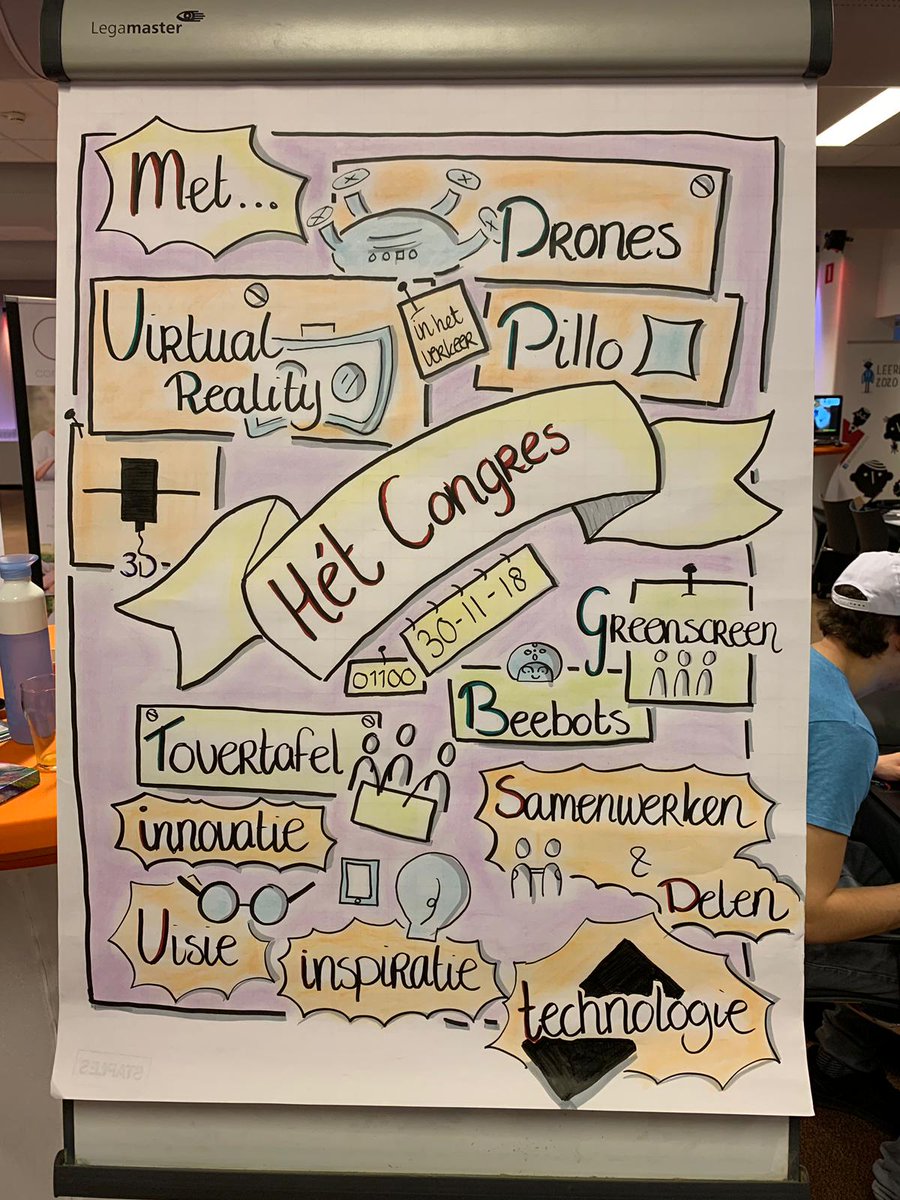 Legamaster
Met...
Drones
Virtual
Reality
in het
verkeer
Pillo
3D
Hét Congres
30-11-18
01100
Greenscreen
Beebots
Tovertafel
innovatie
Samenwerken
&
Delen
Visie
inspiratie
technologie
STAPLES
LEER
2020